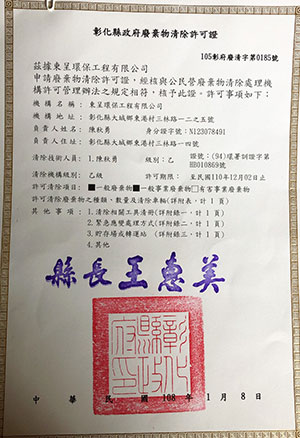 彰化縣政府廢棄物清除許可證
105彰府廢清字第0185號
茲據東呈環保工程有限公司
申請廢棄物清除許可證,經核與公民營廢棄物清除處理機
構許可管理辦法之規定相符,核予此證。許可事項如下:
機構名稱:東呈環保工程有限公司
機構地址:彰化縣大城鄉東港村三林路一二之五號
負責人姓名:陳秋勇 身分證字號:N123078491
負責人住址:彰化縣大城鄉東港村三林路一四號
清除技術人員:1.陳秋勇 級別:乙 證號:(94)環署訓證字第
HB010869號
清除機構級別:乙級 許可期限:至民國110年12月02日止
許可清除項目:■一般廢棄物■一般事業廢棄物□有害事業廢棄物
許可清除廢棄物之種類、數量及清除車輛(詳附表,計1頁)
其他事項:1.清除相關工具清冊(詳附錄一,計1頁)
2.緊急應變處理方式(詳附錄二,計1頁)
3.貯存場或轉運站(詳附錄三,計1頁)
4.其他
縣長王惠美
彰化縣政府印
中華民國108年1月8日